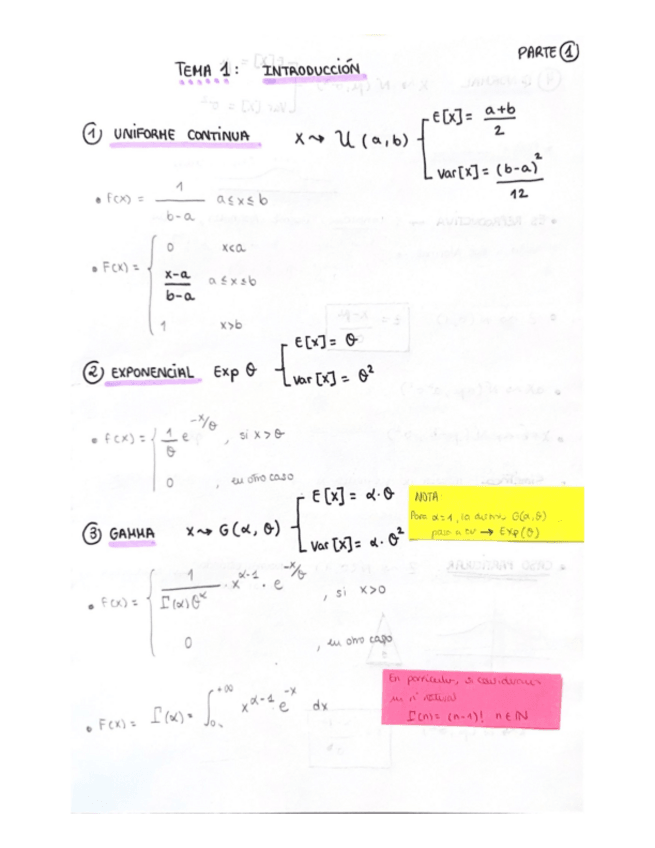 PARTE ①
TEMA 1: INTRODUCCIÓN
① UNIFORME CONTINUA X ⇝ U(a,b) { E[X] = (a+b)/2
Var[X] = (b-a)²/12
• f(x) = 1/(b-a) a ≤ x ≤ b
• F(x) = { 0 x<a
(x-a)/(b-a) a ≤ x ≤ b
1 x>b
② EXPONENCIAL Exp θ { E[X] = θ
Var[X] = θ²
• f(x) = { 1/θ e^(-x/θ) , si x>θ
0 , en otro caso
③ GAMMA X ⇝ G(α, θ) { E[X] = α·θ
Var[X] = α·θ²
NOTA:
Para α=1, la G(α,θ)
pasa a → Exp(θ)
• f(x) = { 1/(Γ(α)θ^α) · x^(α-1) · e^(-x/θ) , si x>0
0 , en otro caso
En particular, si
un nº
Γ(n) = (n-1)! n∈ℕ
• F(x) = Γ(α) = ∫₀^(+∞) x^(α-1) e^(-x) dx